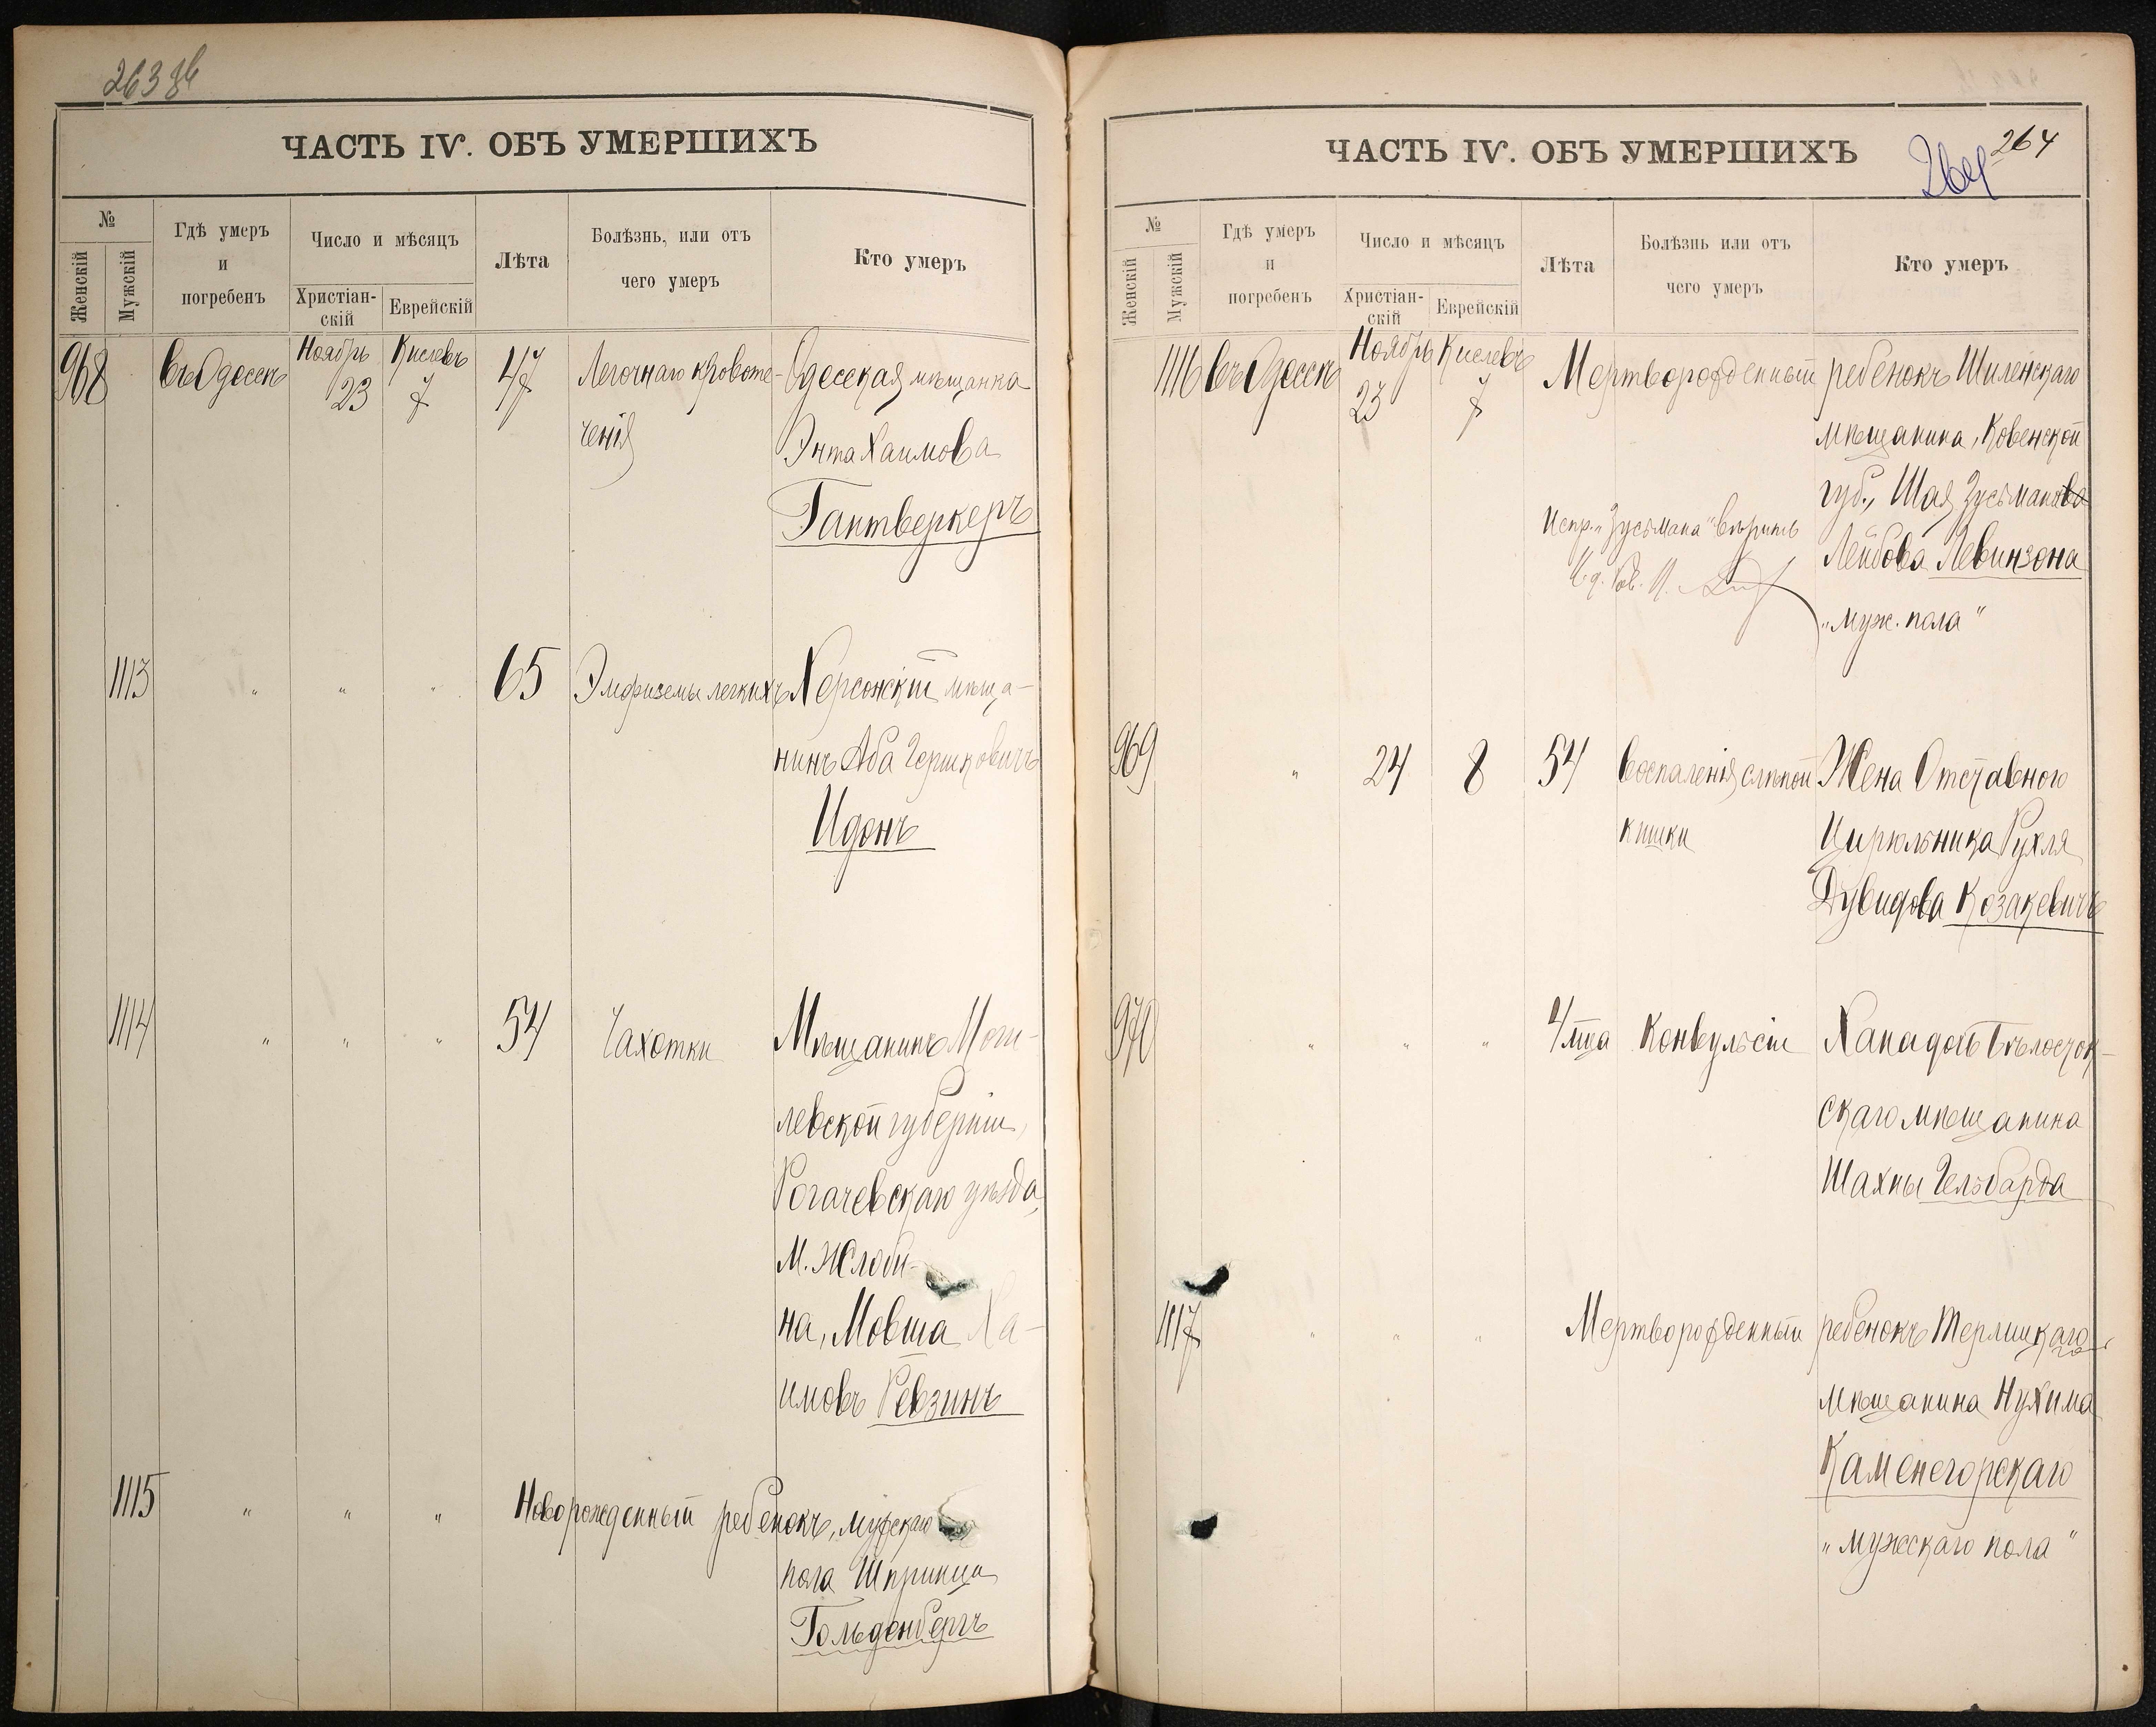 263 об
ЧАСТЬ IV. ОБЪ УМЕРШИХЪ
№
Женскій
Мужскій
Гдѣ умеръ
и
погребенъ
Число и мѣсяцъ
Христіан-
скій
Еврейскій
Лѣта
Болѣзнь, или отъ
чего умеръ
Кто умеръ
968 въ Одессѣ Ноябрь 23 Кислевъ 7 47 Легочнаго кровоте- Одесская мѣщанка
ченія Энта Хаимова
Гантверкеръ
1113 " " " 65 Эмфиземы легкихъ Херсонскій мѣща-
нинъ Аба Гершковичъ
Идонъ
1114 " " " 54 Чахотки Мѣщанинъ Моги-
левской губерніи,
Рогачевскаго уѣзда,
М. Жлоби-
на, Мовша Ха-
имовъ Ревзинъ
1115 " " " Новорожденный ребенокъ, мужскаго
пола Шпринца
Гольденбергъ
ЧАСТЬ IV. ОБЪ УМЕРШИХЪ
264
264
№
Женскій
Мужскій
Гдѣ умеръ
и
погребенъ
Число и мѣсяцъ
Христіан-
скій
Еврейскій
Лѣта
Болѣзнь или отъ
чего умеръ
Кто умеръ
1116 въ Одессѣ Ноябрь 23 Кислевъ 7 Мертворожденный ребенокъ Шиленскаго
мѣщанина, Ковенской
губ., Шая Зусьманова
Испр. "Зусьмана" вѣрить
Лейбова Левинзона
"муж. пола"
969 " 24 8 54 Воспаленія слѣпой Жена Отставного
кишки Цирюльника Рухля
Дувидова Козакевичъ
970 " " " мца Конвульсіи Хана дочь Бѣлосток-
скаго мѣщанина
Шахны Гельбарда
1117 " " " Мертворожденный ребенокъ Терлицкаго
мѣщанина Нухима
Каменегорскаго
"мужскаго пола"